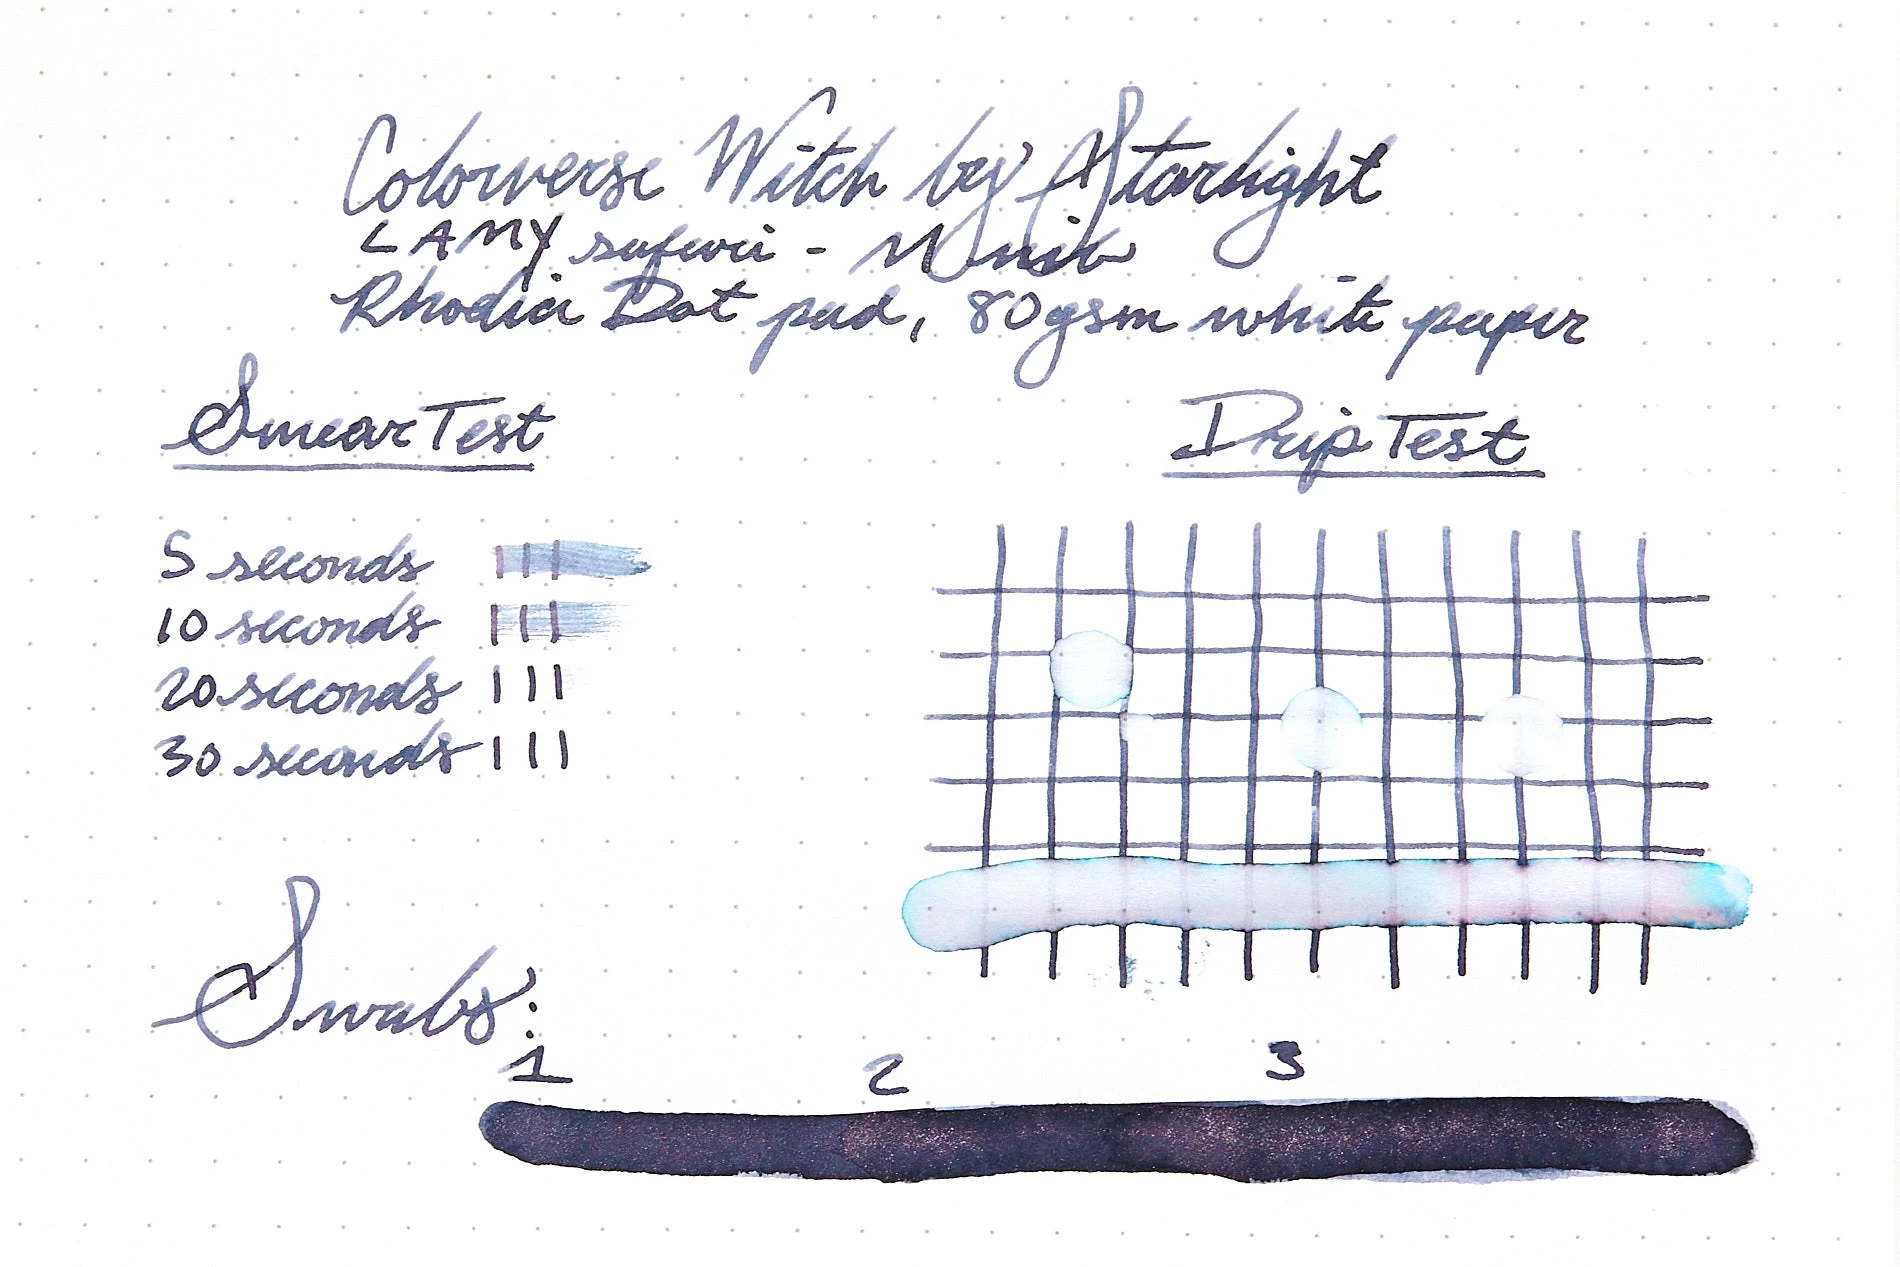 Colorverse Witch by Starlight
LAMY safari - M nib
Rhodia Dot pad, 80gsm white paper
Smear Test
Drip Test
5 seconds
10 seconds
20 seconds
30 seconds
Swabs:
1 2 3